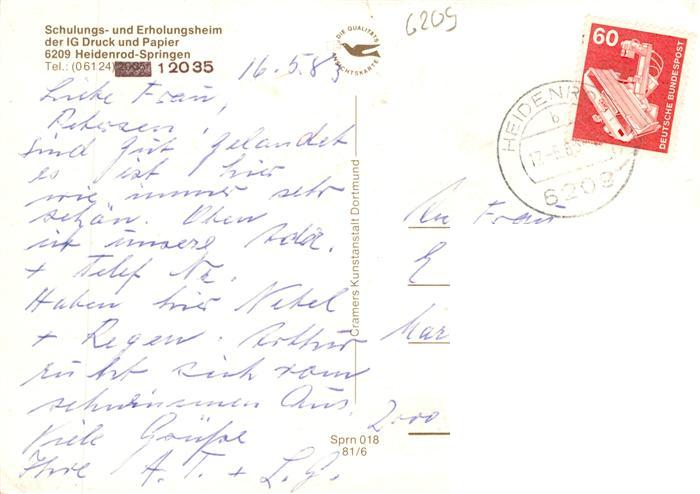 Schulungs- und Erholungsheim
der IG Druck und Papier
6209 Heidenrod-Springen
Tel.: (06124) 12035
6209
DIE QUALITÄTS
ANSICHTSKARTE
16.5.83
Liebe Frau
Petersen!
Sind gut gelandet
es ist hier
wie immer sehr
schön. Oben
ist unsere Adr.
+ Telef Nr.
Haben hier Nebel
+ Regen. Arthur
ruht sich vom
schwimmen Aus.
Viele Grüße
Ihre A. T. + L. G.
Cramers Kunstanstalt Dortmund
Sprn 018
81/6
60
DEUTSCHE BUNDESPOST
HEIDENR
17.-5.8
6209
An Frau
E
Mar
2000